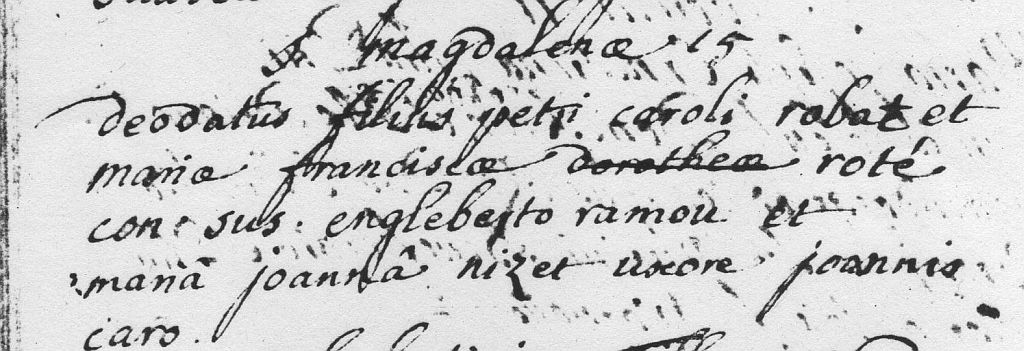 magdalenæ 15
deodatus filius petri caroli robat et
mariæ franciscæ dorotheæ roté
con. sus. engleberto ramou et
mariâ joannâ nizet uxore joannis
caro.